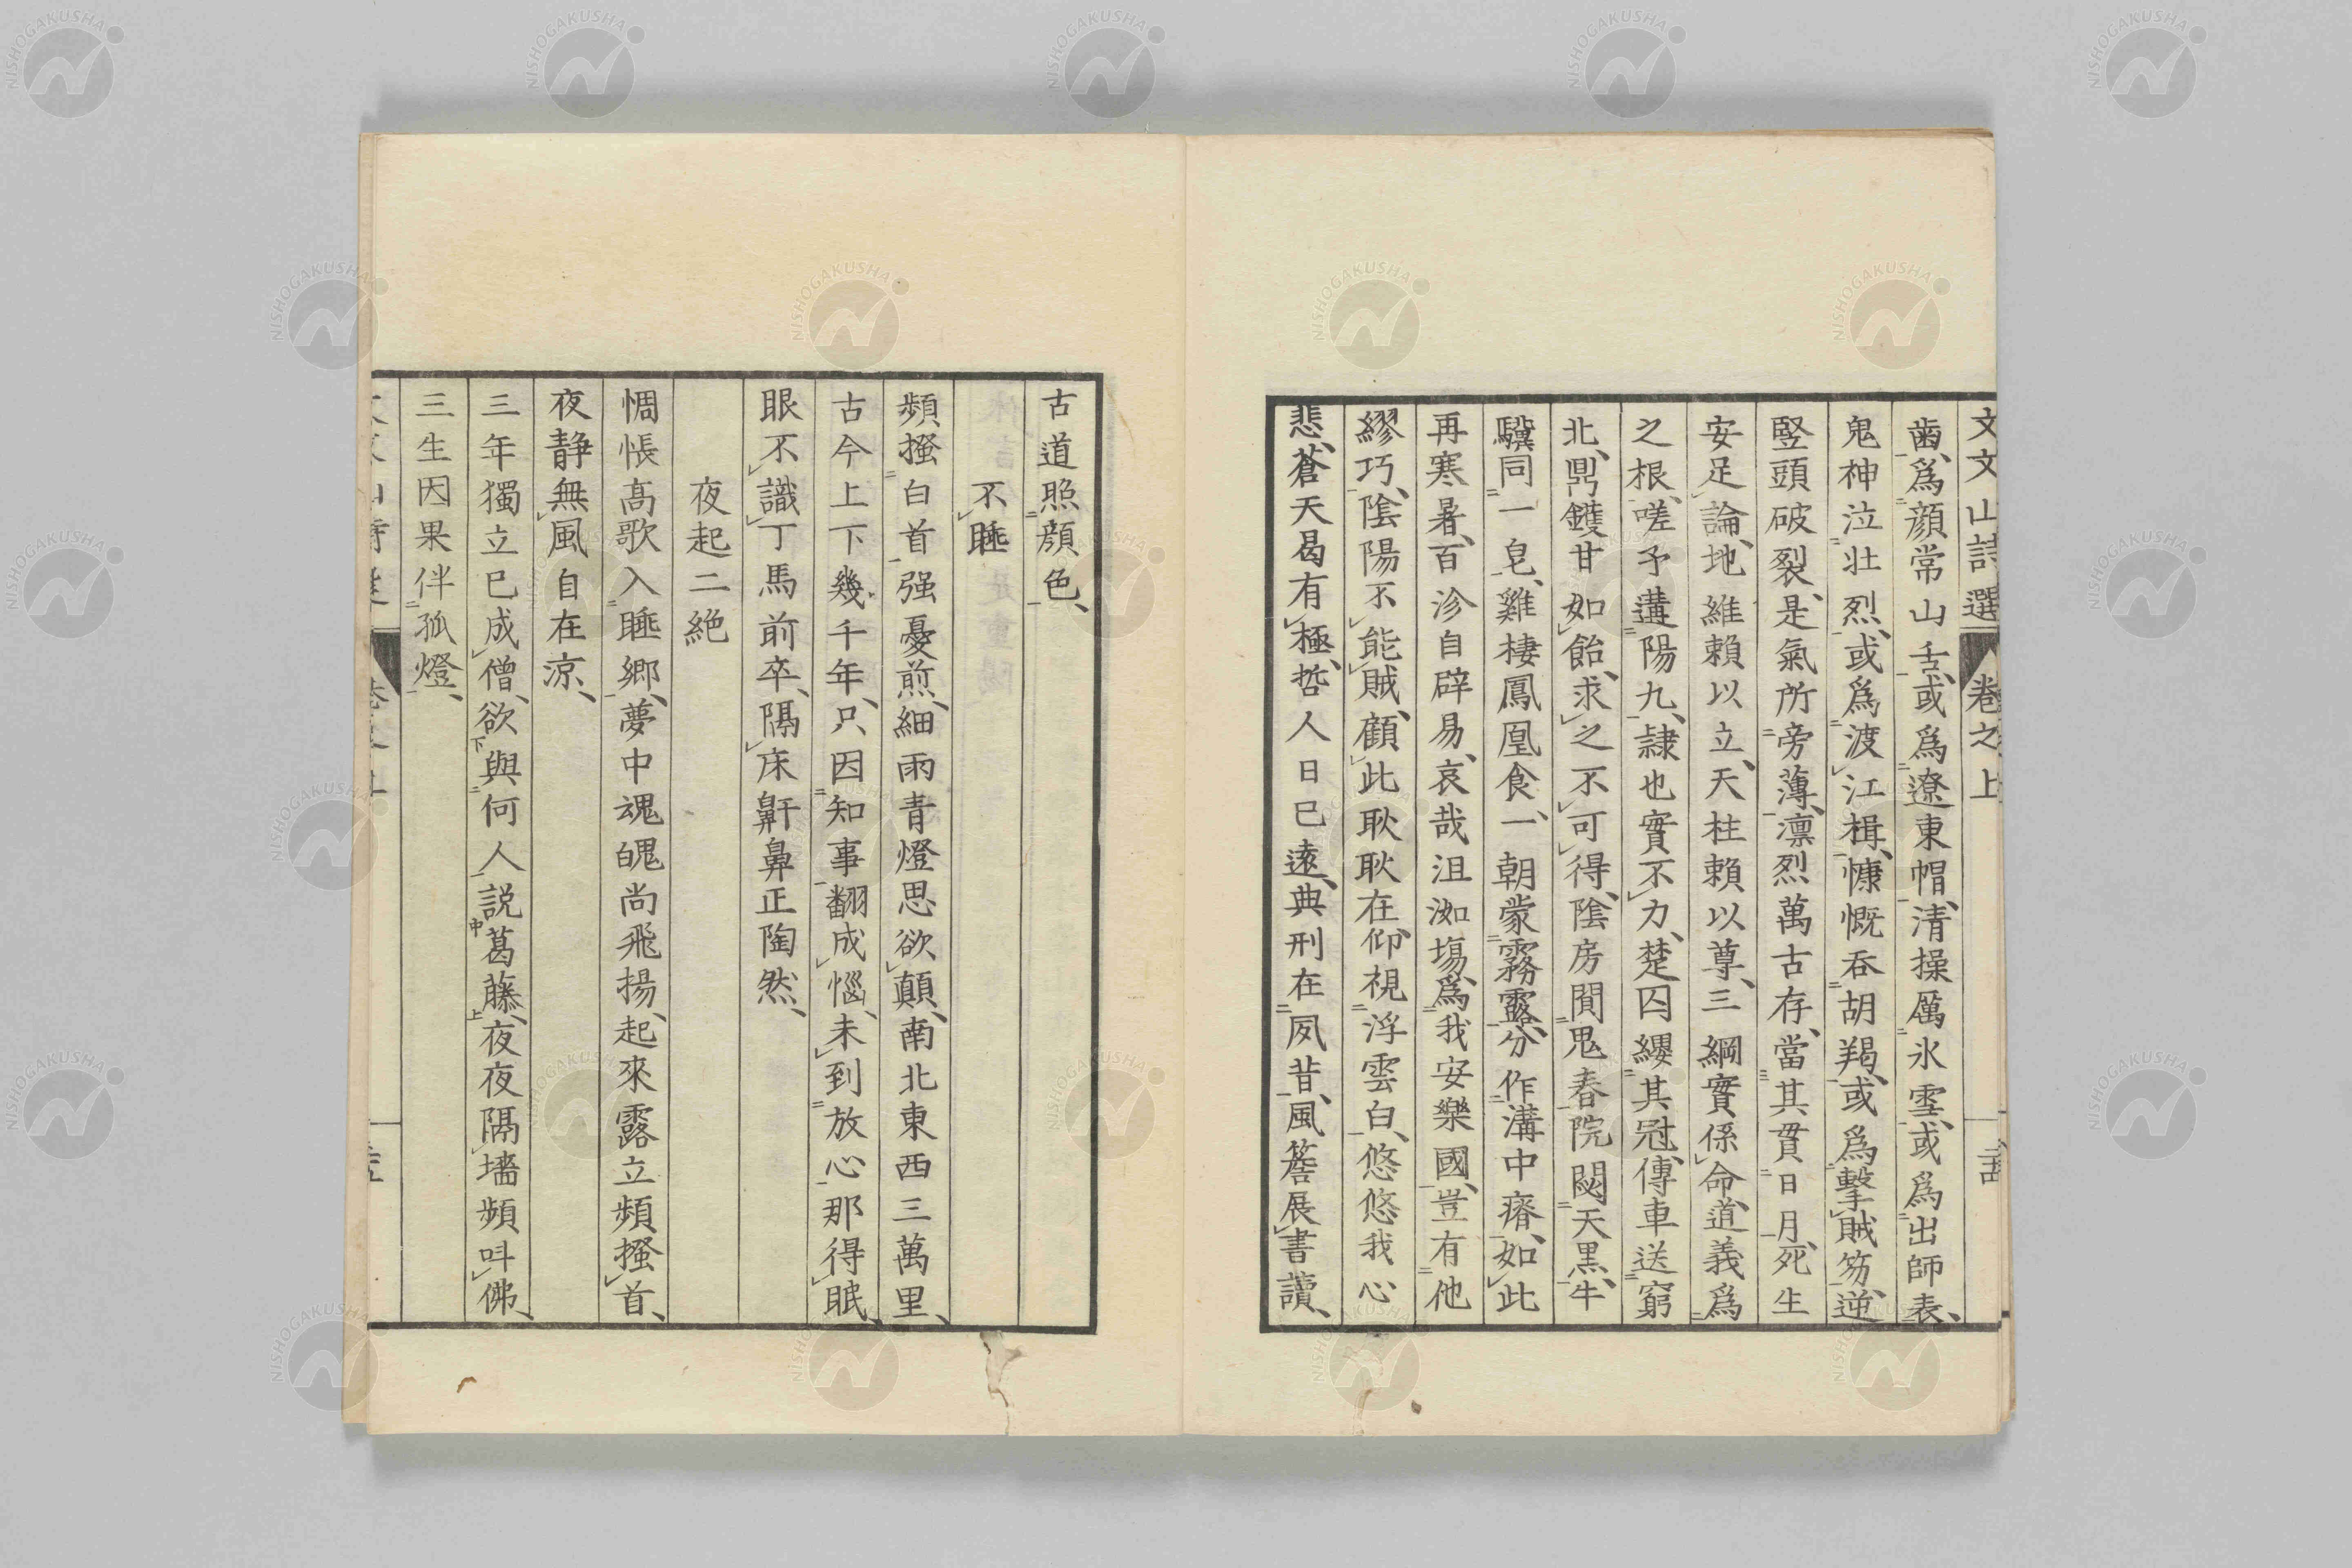 文文山詩選 卷之上
齒、爲顔常山舌、或爲遼東帽、清操厲氷雪、或爲出師表、
鬼神泣壯烈、或爲渡江楫、慷慨呑胡羯、或爲擊賊笏、逆
竪頭破裂、是氣所旁薄、凛烈萬古存、當其貫日月、死生
安足論、地維賴以立、天柱賴以尊、三綱實係命、道義爲
之根、嗟予遘陽九、隷也實不力、楚囚纓其冠、傳車送窮
北、鼎鑊甘如飴、求之不可得、陰房闃鬼春院閟天黑、牛
驥同一皂、雞棲鳳凰食、一朝蒙霧露、分作溝中瘠、如此
再寒暑、百沴自辟易、哀哉沮洳塲、爲我安樂國、豈有他
繆巧、陰陽不能賊、顧此耿耿在、仰視浮雲白、悠悠我心
悲、蒼天曷有極、哲人日已遠、典刑在夙昔、風簷展書讀、
古道照顔色、
不睡
頻搔白首强憂煎、細雨青燈思欲顛、南北東西三萬里、
古今上下幾千年、只因知事翻成惱、未到放心那得眠、
眼不識丁馬前卒、隔床鼾鼻正陶然、
夜起二絶
惆悵高歌入睡郷、夢中魂魄尚飛揚、起來露立頻搔首、
夜靜無風自在凉、
三年獨立已成僧、欲與何人説葛藤、夜夜隔墻頻呌佛、
三生因果伴孤燈、
NISHOGAKUSHA